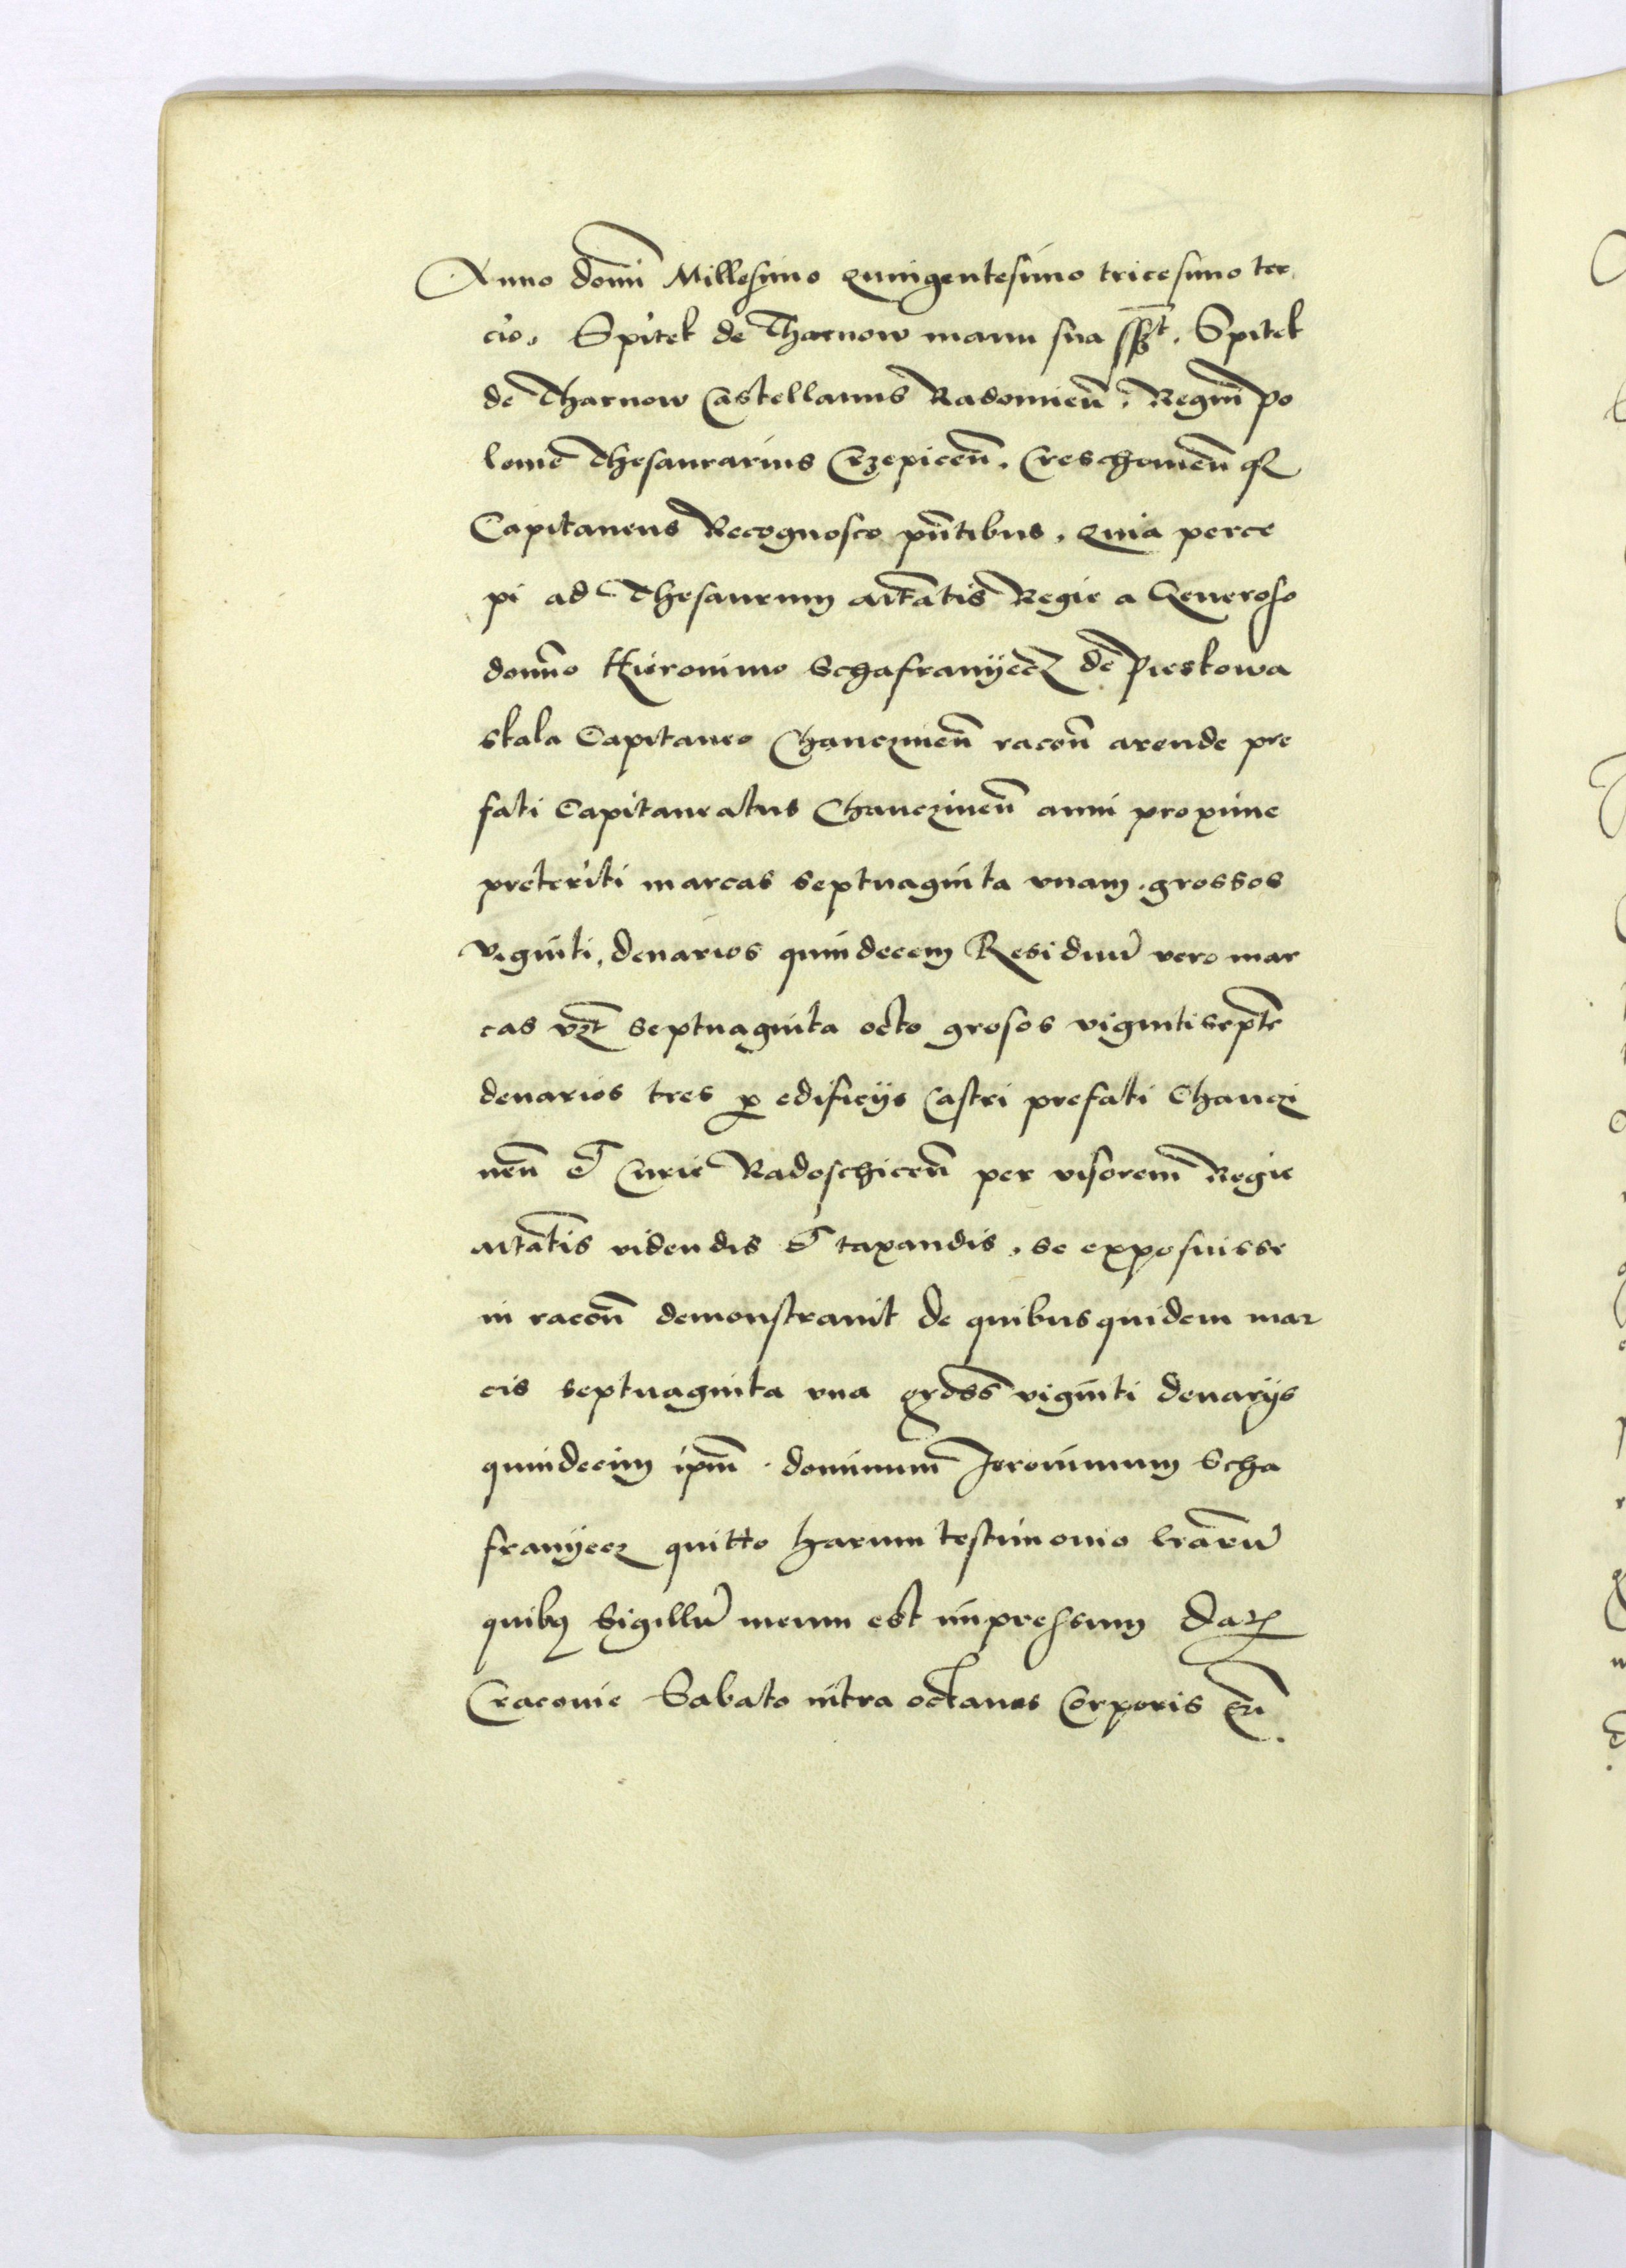 Anno domī Millesimo Quingentesimo tricesimo ter
cio. Spitek de Tharnow manu sua ssp̄t. Spitek
de Tharnow Castellanus Radomien̄. Regni po
lonie Thesaurarius Crzepicen̄. Creschowien̄ qȝ
Capitaneus Recognosco pn̄tibus. Quia perce
pi ad Thesaurum Mtātis Regie a Generoso
domino Hieronimo Schafranyecz de Pieskowa
skala Capitaneo Chanczinen̄ racōn arende pre
fati Capitaneatus Chanczinen̄ anni proxime
preteriti marcas septuaginta vnam. grossos
viginti, denarios quindecem Residuū vero mar
cas vzt septuaginta octo grosos viginti septē
denarios tres ꝓ edificijs Castri prefati Chanczi
nen̄ et Curie Radoschicen̄ per visorem Regie
Mtātis videndis et taxandis. se exposuisse
in racōn demonstrauit de quibus quidem mar
cis septuaginta vna gross̄ viginti denarijs
quindecim ipm̄ dominum Jeronimum Scha
franyecz quitto harum testimonio lrārū
quibꝰ Sigillū meum est impressum Datꝭ
Cracouie Sabato intra octauas Corporis xp̄i.